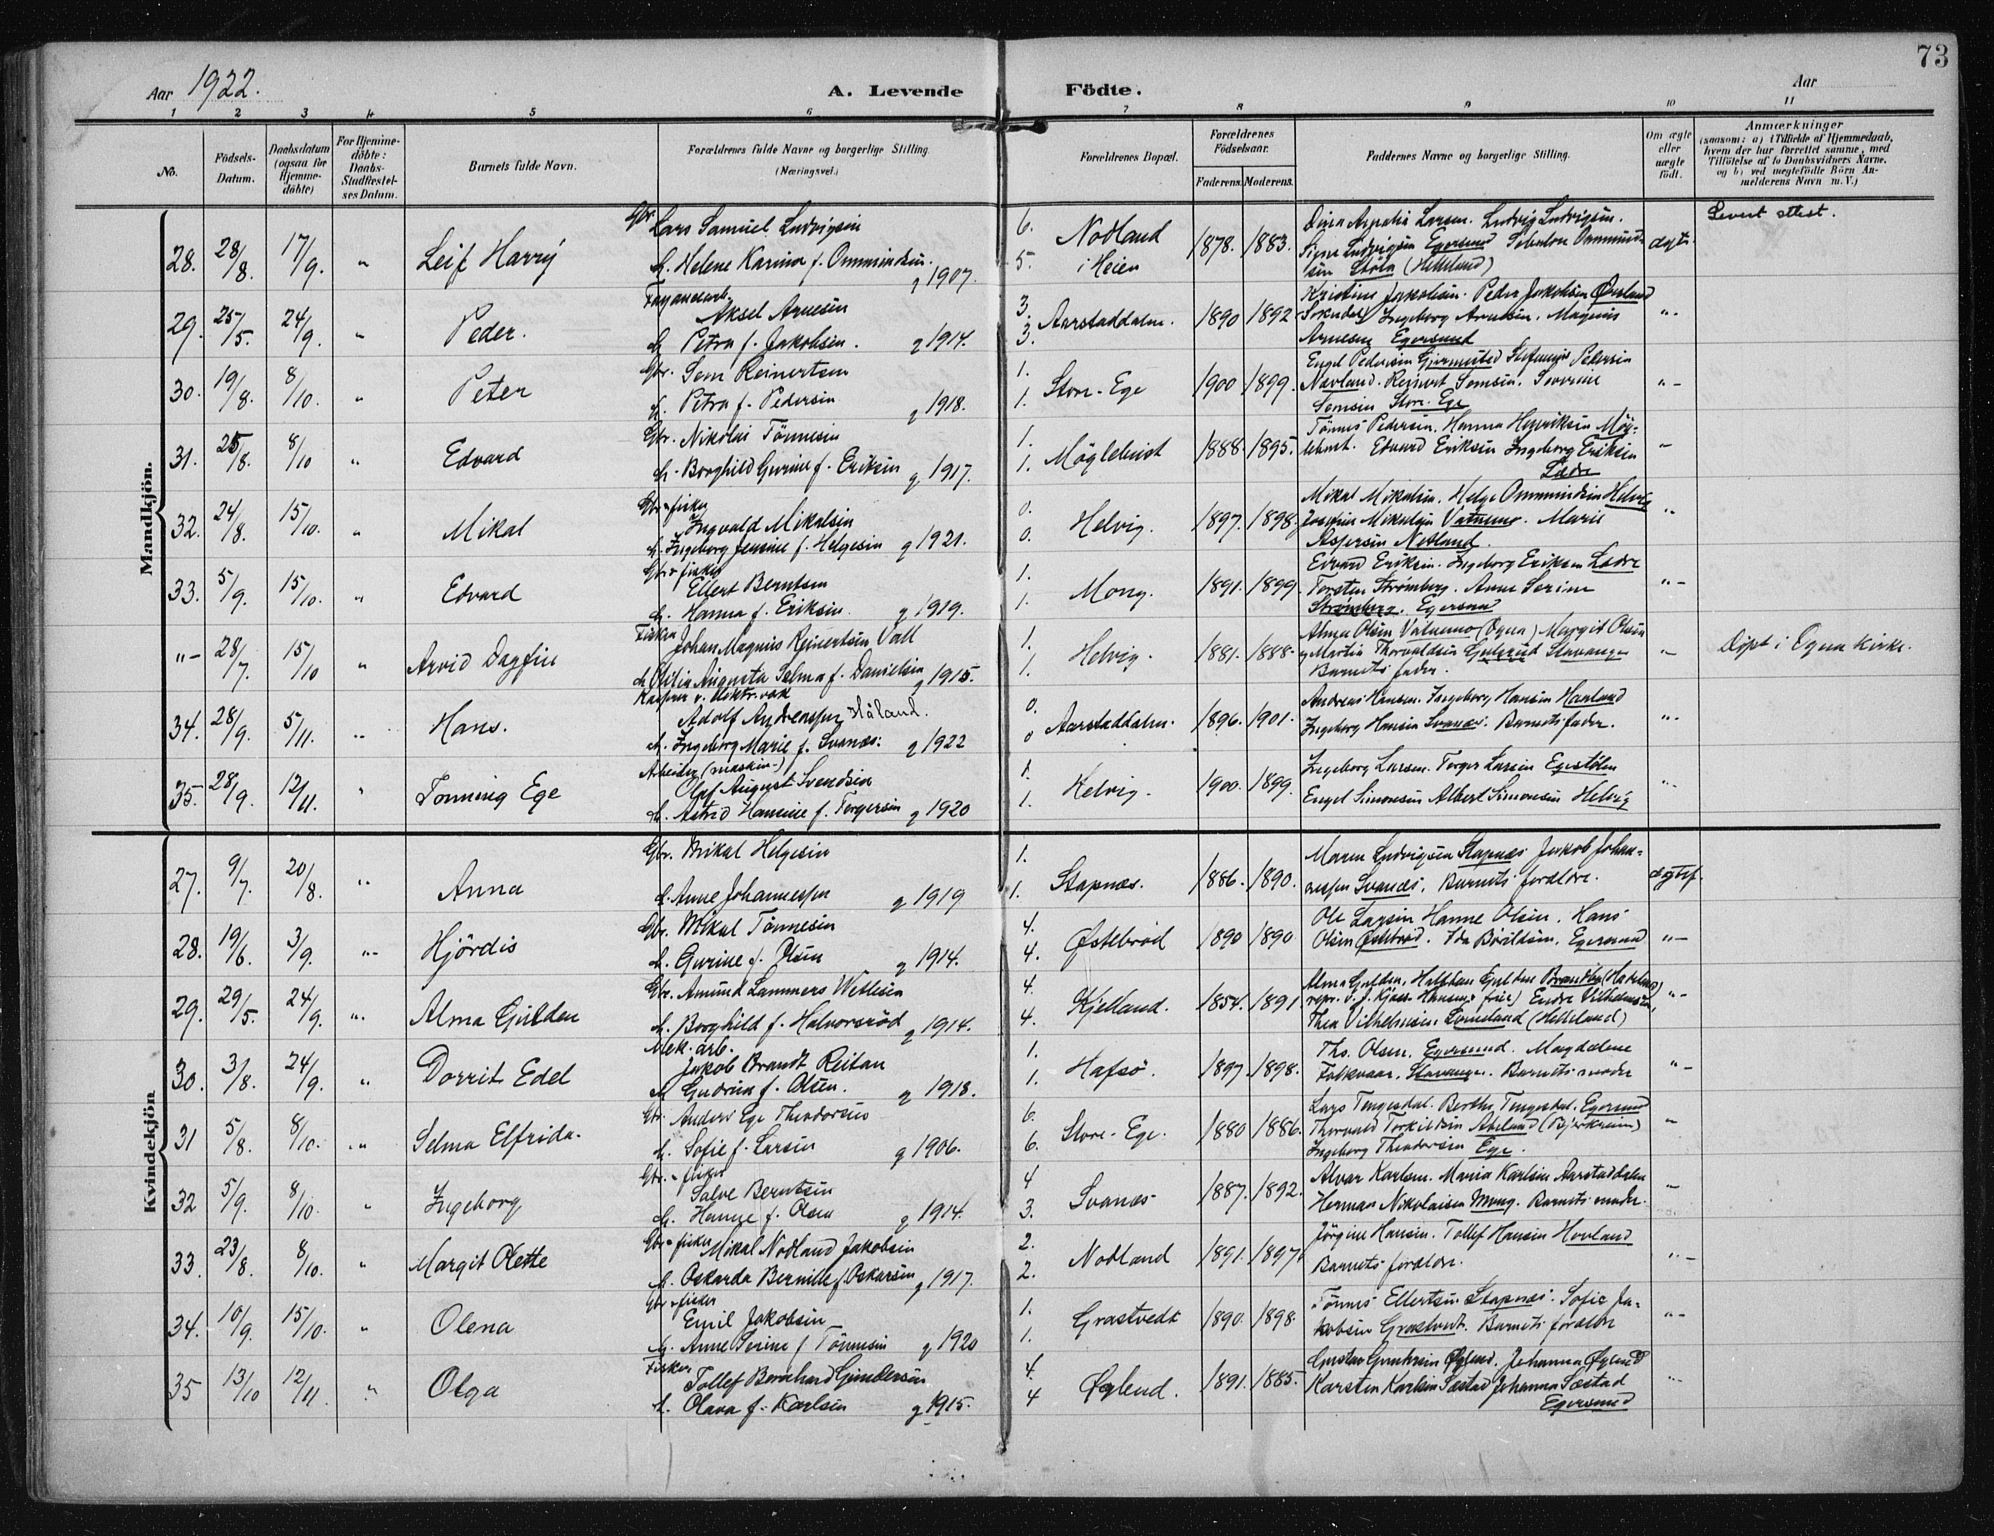 73
Aar 1922.
A. Levende Födte.
Aar
1 2 3 4 5 6 7 8 9 10 11
No.
Födsels-Datum.
Daabsdatum (ogsaa for Hjemmedöbte)
For Hjemmedöbte: Daabs-Stadfæstelses Datum.
Barnets fulde Navn.
Forældrenes fulde Navne og borgerlige Stilling.
(Næringsvei.)
Forældrenes Bopæl.
Forældrenes Födselsaar.
Faderens. Moderens.
Faddernes Navne og borgerlige Stilling.
Om ægte eller uægte födt.
Anmærkninger
(saasom: a) i Tilfælde af Hjemmedaab, hvem der har forrettet samme, med Tilföielse af to Daabsvidners Navne, og b) ved uægtefödte Börn Anmelderens Navn m. V.)
Mandkjön.
28. 28/8. 17/9. " Leif Harry
Gbr. Lars Samuel Ludvigsen
h. Helene Karina f. Ommundsen. g 1907.
6. 5. Nodland i Heien 1878. 1883.
Larsen. Ludvig Ludvigsen. Signe Ludvigsen Egersund Ommundsen Støla (Helleland)
ægte. Levert attest.
29. 25/5. 24/9. " Peder.
Aksel Arnesen
h. Petra f. Jakobsen. g 1914.
3. 3. Aarstaddalen. 1890 1892
Kristine Jakobsen. Peder Jakobsen Ørsland Ingeborg Arnesen. Magnus Arnesen Egersund
"-
30. 19/8. 8/10. " Peter
Gbr. Sem Reinertsen
h. Petra f. Pedersen g 1918.
1. 1. Store-Ege 1900 1899.
Engel Pedersen Gjermestad Pedersen Navland. Reinert Semsen. Severine Semsen Store-Ege
"-
31. 25/8. 8/10 " Edvard
Gbr. Nikolai Tönnesen
h. Borghild Gurine f. Eriksen g 1917.
1. 1. Möglehöist 1888. 1895.
Tönnes Pedersen. Hanna Henriksen Edvard Eriksen Ingeborg Eriksen Lædre
"
32. 24/8. 15/10. " Mikal
Gbr. fisker Ingvald Mikalsen
h. Ingeborg Jensine f. Helgesen g 1921.
0. 0. Helvig. 1897. 1898.
Mikal Mikalsen. Helge Ommundsen Helvig Josefine Mikalsen Vatnemo. Marie Aspersen Nodland.
"
33. 5/9. 15/10. " Edvard
Gbr. fisker Ellert Berntsen
h. Hanna f. Eriksen. g 1919.
1. 1. Mong. 1891. 1899
Edvard Eriksen. Ingeborg Eriksen Lædre Torsten Strömberg. Anne Serine Strömberg. Egersund
"-
"- 28/7. 15/10 " Arvid Dagfin
Fisker Johan Magnus Reinertsen Vall
h. Otilia Augusta Selma f. Danielsen g 1915.
1. 1. Helvig. 1881. 1888.
Alma Olsen Vatnemo (Ogna) Margit Olsen Martin Thorvaldsen Stavanger Barnets fader.
" Döpt i Egna Kirke.
34. 28/9. 5/11. " Hans.
Adolf Andreassen Håland.
h. Ingeborg Marie f. Svanæs. g 1922
0. 0 Aarstaddalen. 1896. 1901.
Andreas Hansen. Ingeborg Hansen Hovland Ingeborg Hansen Svanæs. Barnets fader.
"
35. 28/9. 12/11. " Tonning Ege
Arbeider (maskin-) Olaf August Svendsen
h. Astrid Hansine f. Torgersen g 1920
1. 1. Helvig. 1900. 1899.
Ingeborg Larsen. Torger Larsen Egestölen Engel Simonsen Albert Simonsen Helvig
"
Kvindekjön
27. 9/7. 20/8. " Anna
Gbr. Mikal Helgesen
h. Anne Johannessen g 1919
1. 1. Stapnæs. 1886. 1890.
Maren Ludvigsen Stapnæs Jakob Johannessen Svanæs. Barnets forældre.
ægtef.
28. 19/6. 3/9. "- Hjördis
Gbr. Mikal Tönnesen
h. Gurine f. Olsen g 1914.
4. 4. Østebröd 1890 1890
Ole Larsen Hanne Olsen. Hans Olsen Østebröd. Ida Egersund
"-
29. 29/5. 24/9. " Alma Gulden
Gbr. Amund Lammers Wetlesen
h. Borghild f. Halvorsröd g 1914.
4. 4. Kjelland. 1854. 1891
Alma Gulden, Halfdan Gulden Endre Vilhelmsen, Thea Vilhelmsen. (Helleland)
"-
30. 3/8. 24/9. " Dorrit Edel
Mek. arb. Jakob Brandt Reitan
h. Gudrun f. Olsen. g 1918.
1. 1. Hafsö. 1897. 1898.
Ths. Olsen. Egersund. Magdalene Folkvaar, Stavanger. Barnets moder
"-
31 5/8. 8/10. " Selma Elfrida.
Gbr. Anders Ege Theodorsen
h. Sofie f. Larsen g 1906.
6. 6. Store-Ege. 1880 1886.
Lars Tengesdal. Berthe Tengesdal. Egersund Thorvald Torkildsen Abeland (Bjerkreim) Ingeborg Theodorsen Ege.
"
32 5/9. 8/10. " Ingeborg
Gbr. fisker Salve Berntsen
h. Hanne f. Olsen g 1914.
4 3. Svanæs 1887. 1892.
Alvar Karlsen. Maria Karlsen Aarstaddalen Herman Nikolaisen Mong. Barnets moder.
"
33. 23/8. 8/10. " Margit Olette
Gbr. fisker Mikal Nodland Jakobsen
h. Oskarda Bernille f. Oskarsen g 1917.
2. 2. Nodland 1891. 1897.
Jörgine Hansen. Tollef Hansen Hovland Barnets forældre.
"-
34. 10/9. 15/10. " Olena
Gbr. fisker Emil Jakobsen
h. Anne Serine f. Tönnesen g 1920
1. 1. Grastvedt 1890. 1898.
Tönnes Ellertsen Stapnæs. Sofie Jakobsen Grastvedt. Barnets forældre
"-
35 13/10 12/11. " Olga
Fisker Tollef Bernhard Gundersen
h. Olava f. Karlsen g 1915.
4. 4 Øglend. 1891. 1885.
Gustav Øglend. Johanna Øglend Karsten Karlsen Sæstad Johanna Sæstad Egersund
"